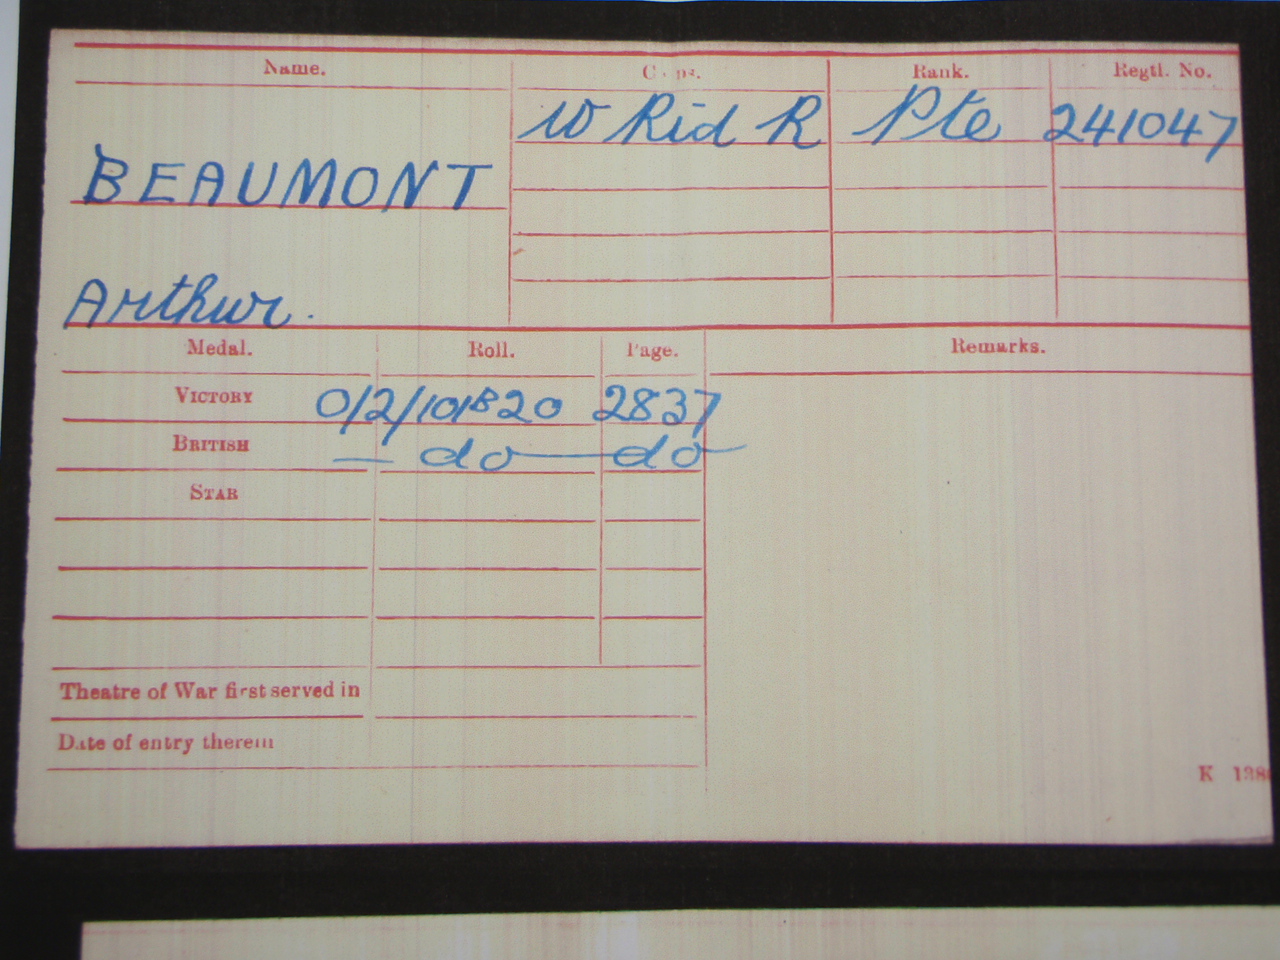 Name. Corps. Rank. Regtl. No.
W Rid R Pte 241047
BEAUMONT
Arthur.
Medal. Roll. Page. Remarks.
VICTORY 0/2/101B20 2837
BRITISH — do — do —
STAR
Theatre of War first served in
Date of entry therein
K